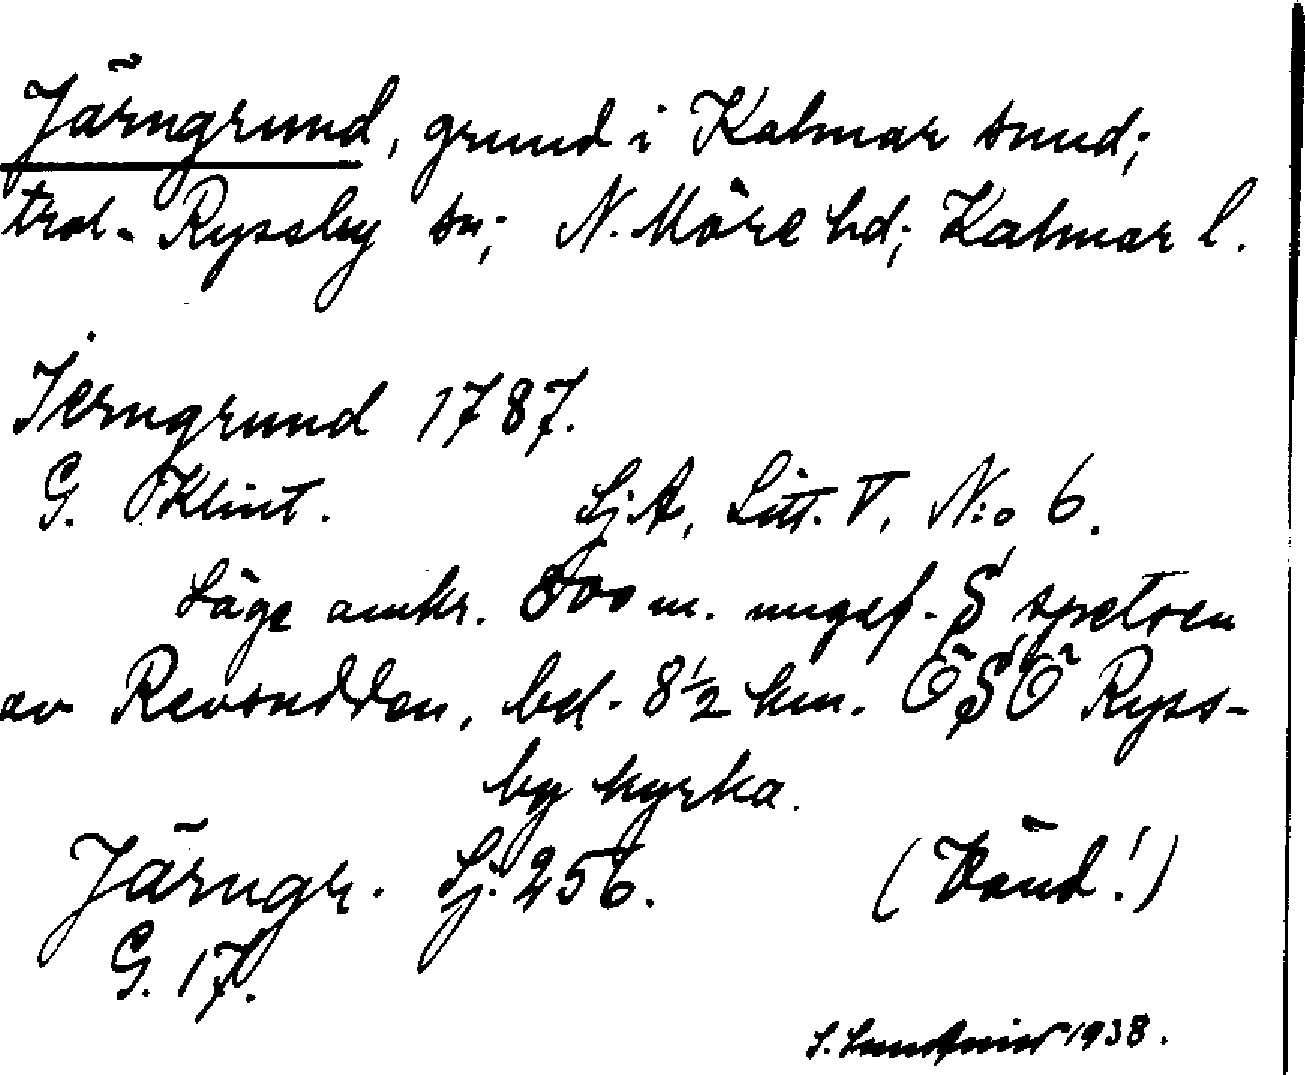 Järngrund, grund i Kalmar sund;
trol. Ryssby sn; N. Möre hd; Kalmar l.
Jerngrund 1787.
G. Klint. SjA, Litt. V, N:o 6.
Läge omkr. 800 m. ungef. S spetsen
av Revsudden, bel. 8 1/2 km. ÖSÖ Ryss-
by kyrka.
Järngr. Sj. 256. (Vänd!)
G. 17.
S. 1938.